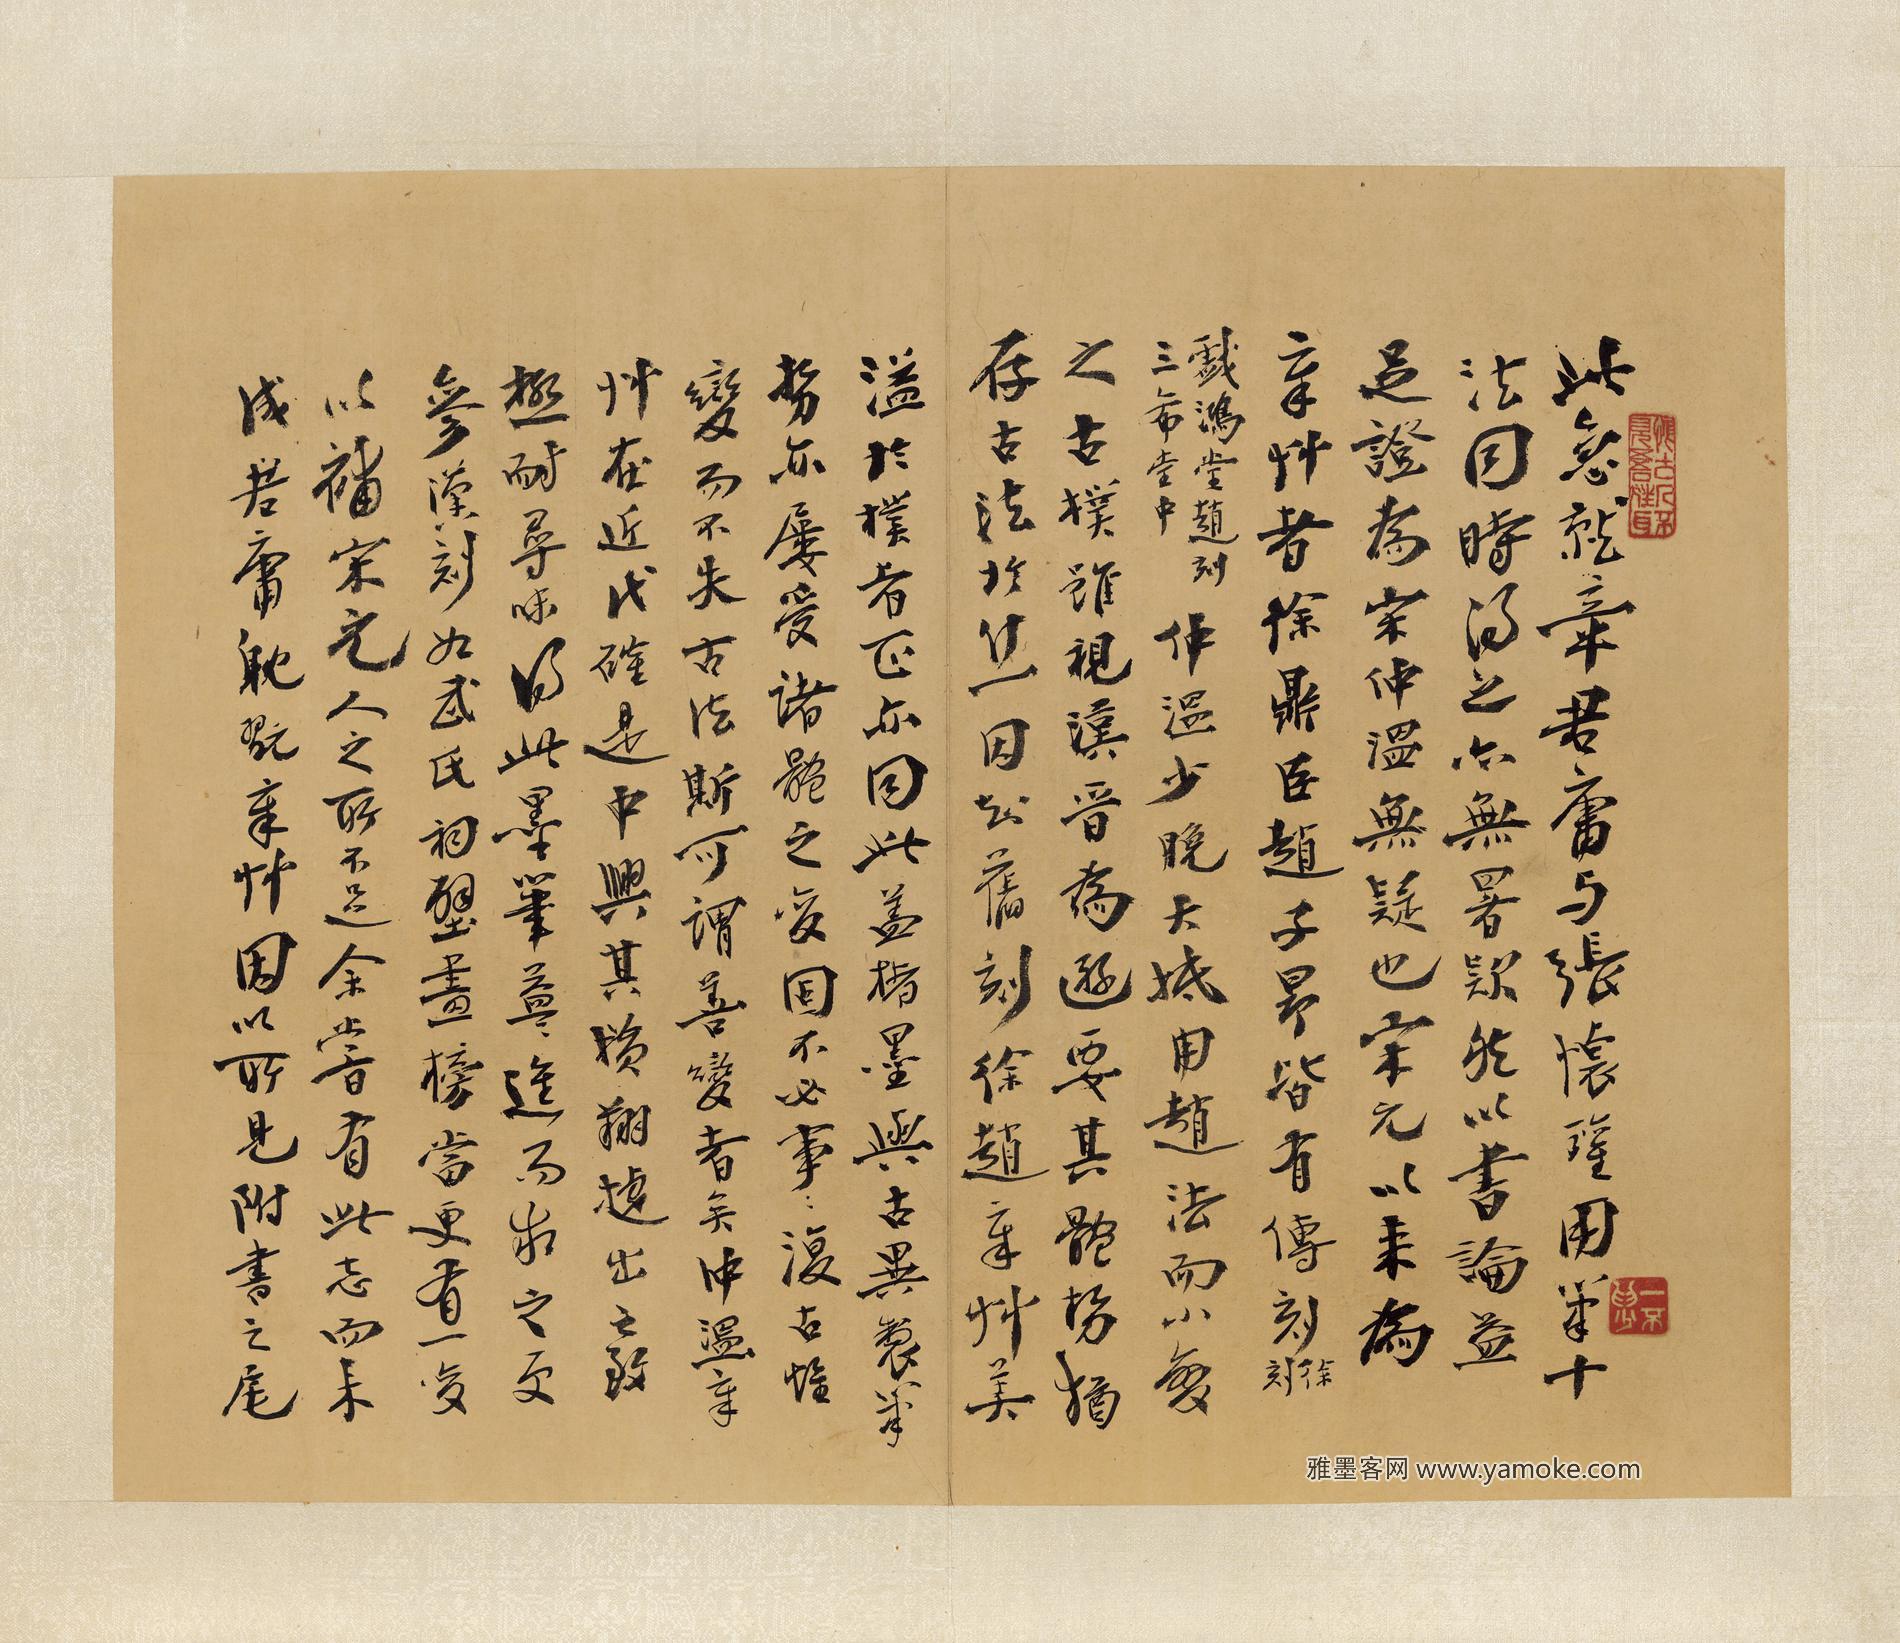 此急就章君庸与張懷瓘用筆十
法同時得之亦無署款然以書論益
足證為宋仲溫無疑也宋元以來為
章艸者徐鼎臣趙子昂皆有傳刻徐刻
戲鴻堂趙刻三希堂中仲溫少晚大抵用趙法而小變
之古樸雖視漢晉為遜要其體勢猶
存古法於什一因知舊刻徐趙章艸美
溢於樸者正亦同此蓋楮墨與古異製筆
勢亦屢受諸體之變固不必事事復古惟
變而不失古法斯可謂善變者矣仲溫章
艸在近代確是中興其損翔越出之致
極耐尋味得此墨筆益益進而求之更
參漢刻如武氏祠壁畫榜當更有一變
以補宋元人之所不足余嘗有此志而未
成君庸耽翫章艸因以所見附書之尾
雅墨客网 www.yamoke.com